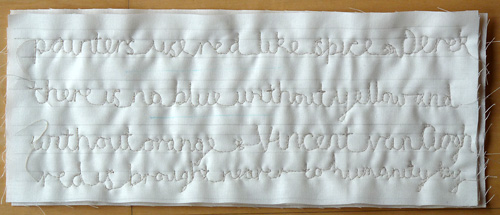 painters use red like spice Derek
there is no blue without yellow and
without orange Vincent van Gogh
red is brought nearer to humanity by